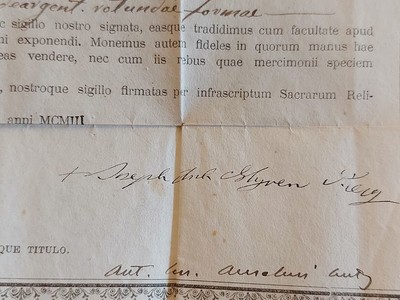 argent. rotundae formae
c sigillo nostro signata, easque tradidimus cum facultate apud
ni exponendi. Monemus autem fideles in quorum manus hae
eas vendere, nec cum iis rebus quae mercimonii speciem
, nostroque sigillo firmatas per infrascriptum Sacrarum Reli-
anni MCMIII
+ Joseph
QUE TITULO.
Ant.